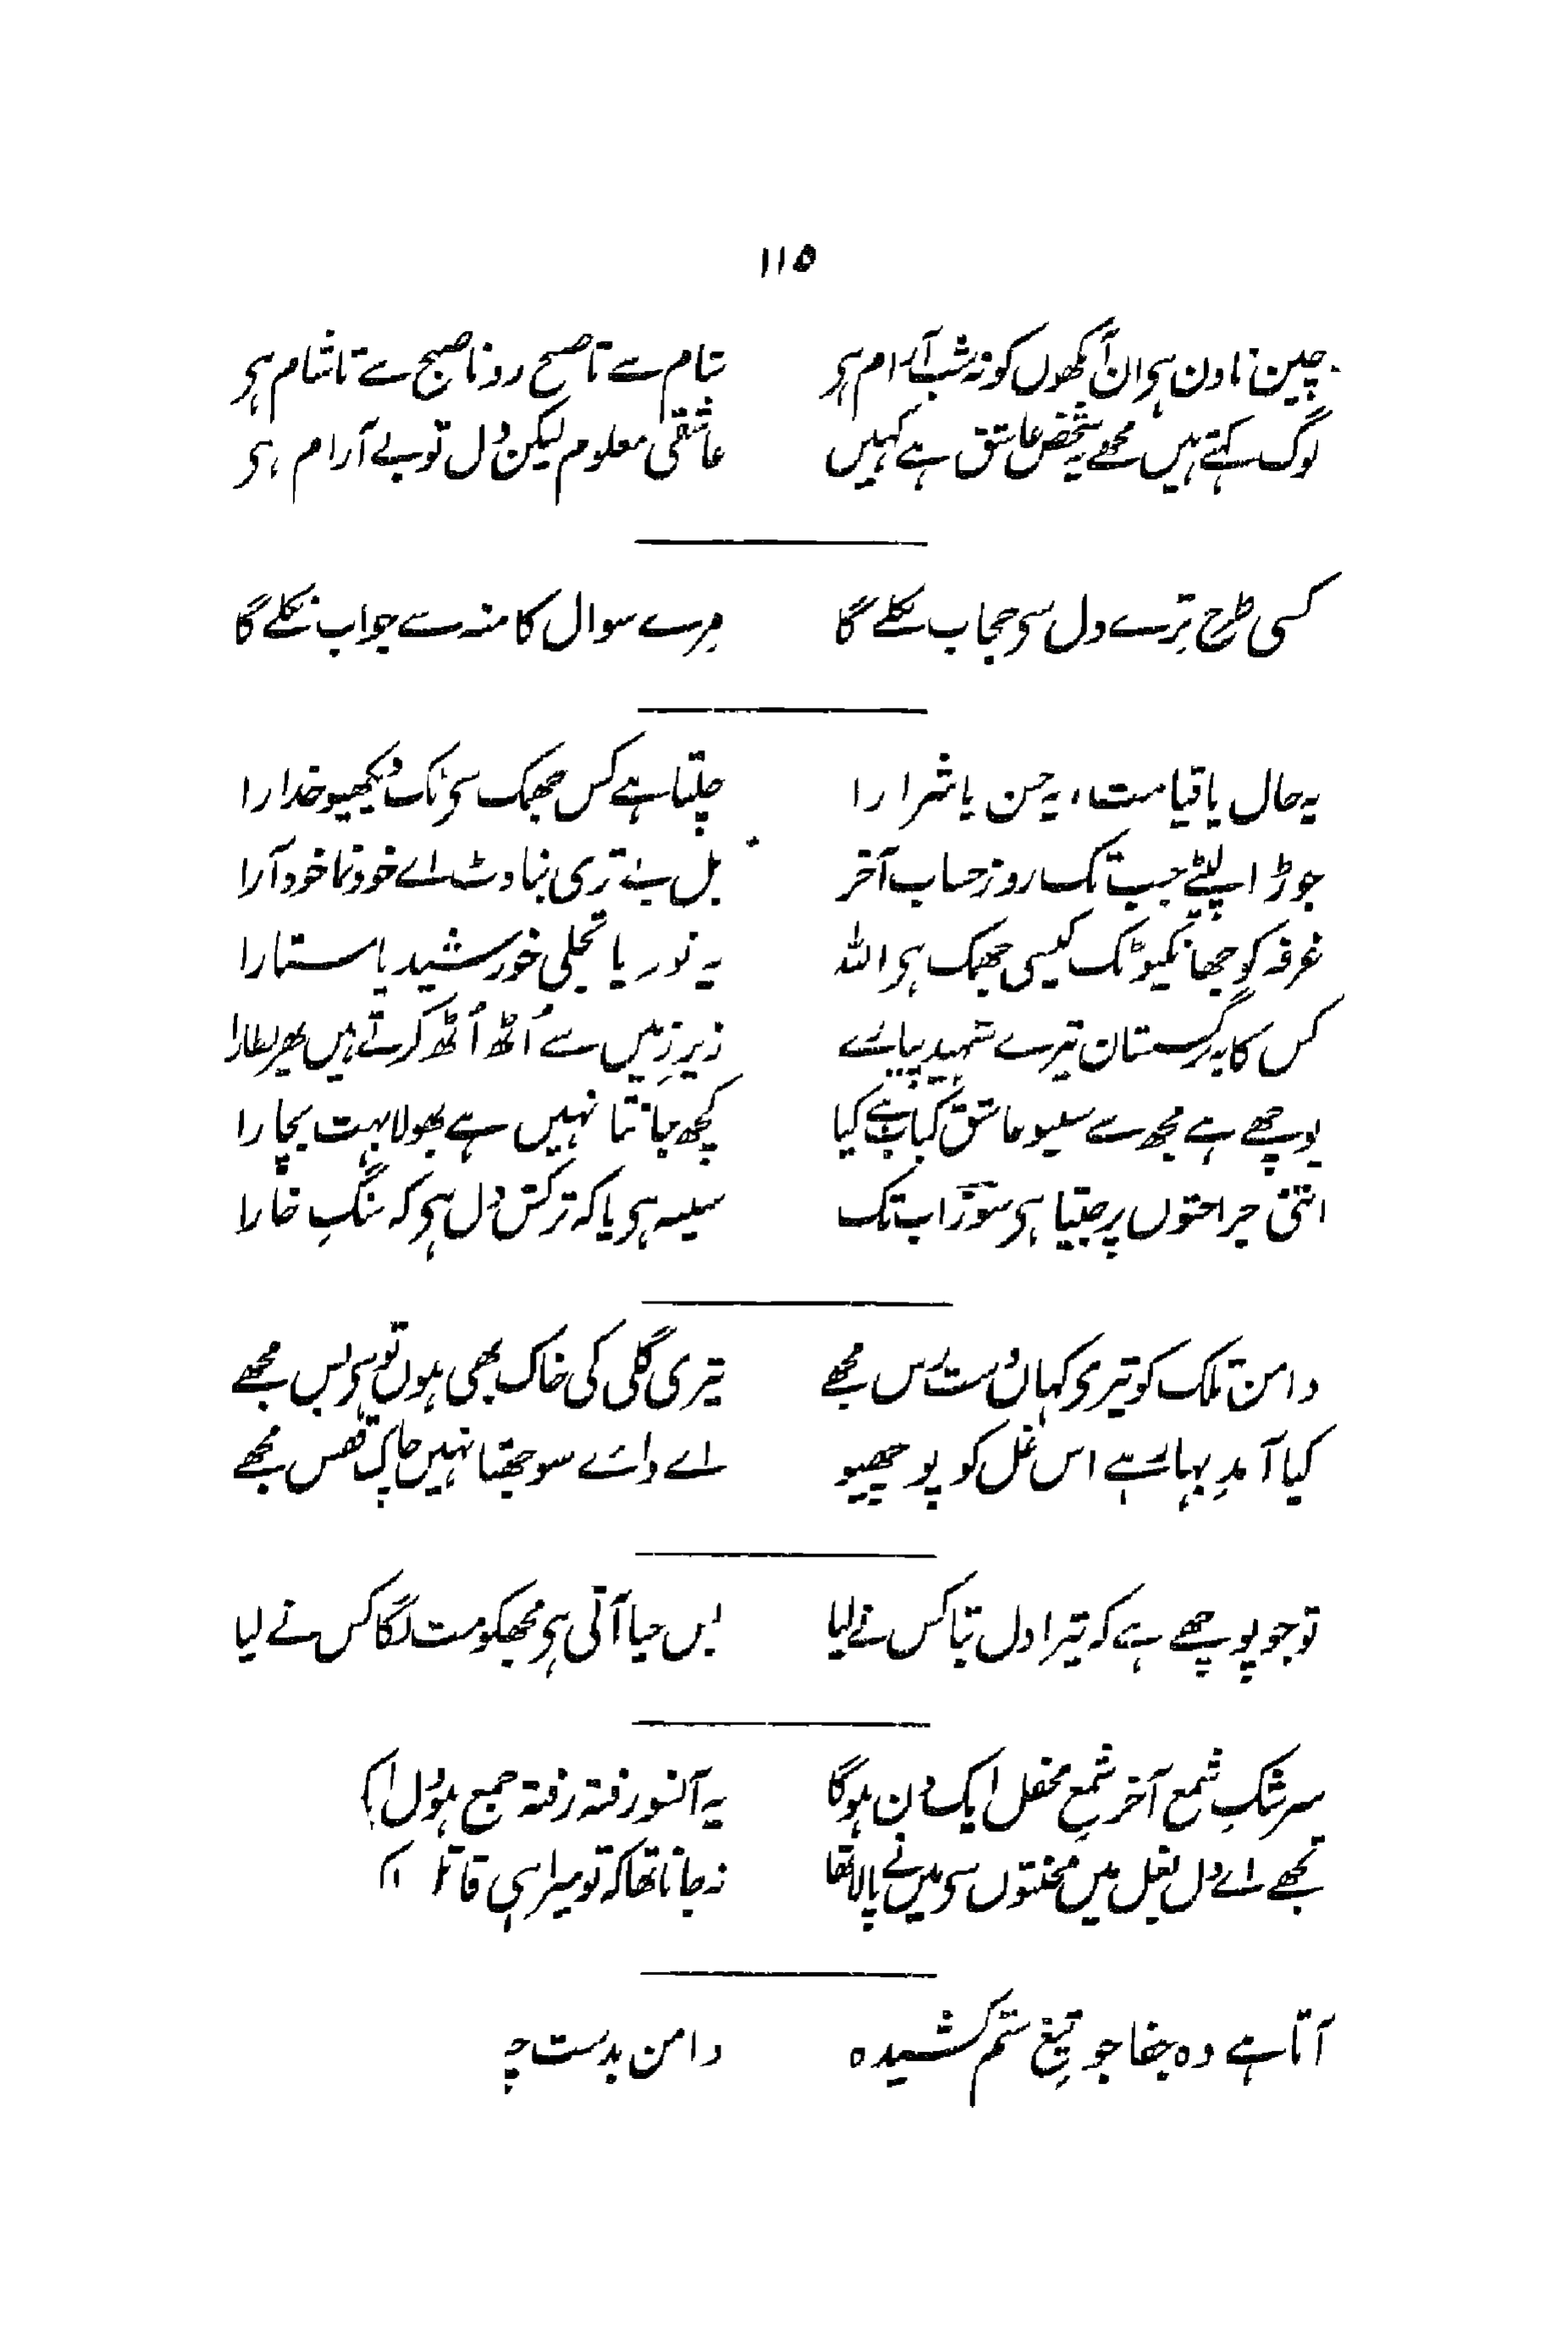 ۱۱۵
چین نا دن ہی ان آنکھوں کو نہ شب آرام ہی شام سے تا صبح رونا صبح سے تا شام ہی
لوگ کہتے ہیں مجھے یہ شخص عاشق ہے کہیں عاشقی معلوم لیکن دل تو بے آرام ہی
کسی طرح ترے دل سی حجاب نکلے گا مرے سوال کا منہ سے جواب نکلے گا
یہ حال یا قیامت، یہ حسن یا شرارا چلتا ہے کس جھمک سی ٹک دیکھیو خدارا
جوڑا لپٹے جب تک روز حساب آخر بل بے تری بناوٹ اے خود نما خود آرا
غرفہ کو جھانکیو ٹک کیسی جھمک ہی اللہ یہ نور یا تجلی خورشید یا ستارا
کس کا یہ گرستان تیرے شہید پیارے زیرِ زمیں سے اُٹھ اُٹھ کرتے ہیں پھر نظارا
پوچھے ہے مجھ سے سلیو عاشق کباب ہے کیا کچھ جانتا نہیں ہے بھولا بہت بچارا
اتنی جراحتوں پر جیتا ہی سوز اب تک سینہ ہی یا کہ ترکش دل ہی کہ سنگِ خارا
دامن تلک کو تیری کہاں دسترس مجھے تیری گلی کی خاک بھی ہوں تو ہی بس مجھے
کیا آمدِ بہار ہے اس غل کو پوچھیو اے وائے سوجھتا نہیں چاک قفس مجھے
تو جو پوچھے ہے کہ تیرا دل بتا کس نے لیا بس حیا آتی ہی مجھکو مت لگا کس نے لیا
سرشکِ شمع آخر شمعِ محفل ایک دن ہوگا یہ آنسو رفتہ رفتہ جمع ہو دل
تجھے اے دل بغل میں محنتوں سی میں نے پالا تھا نہ جانا تھا کہ تو میرا ہی قاتل
آتا ہے وہ جفا جو تیغِ ستم کشیدہ دامن بدست چہ